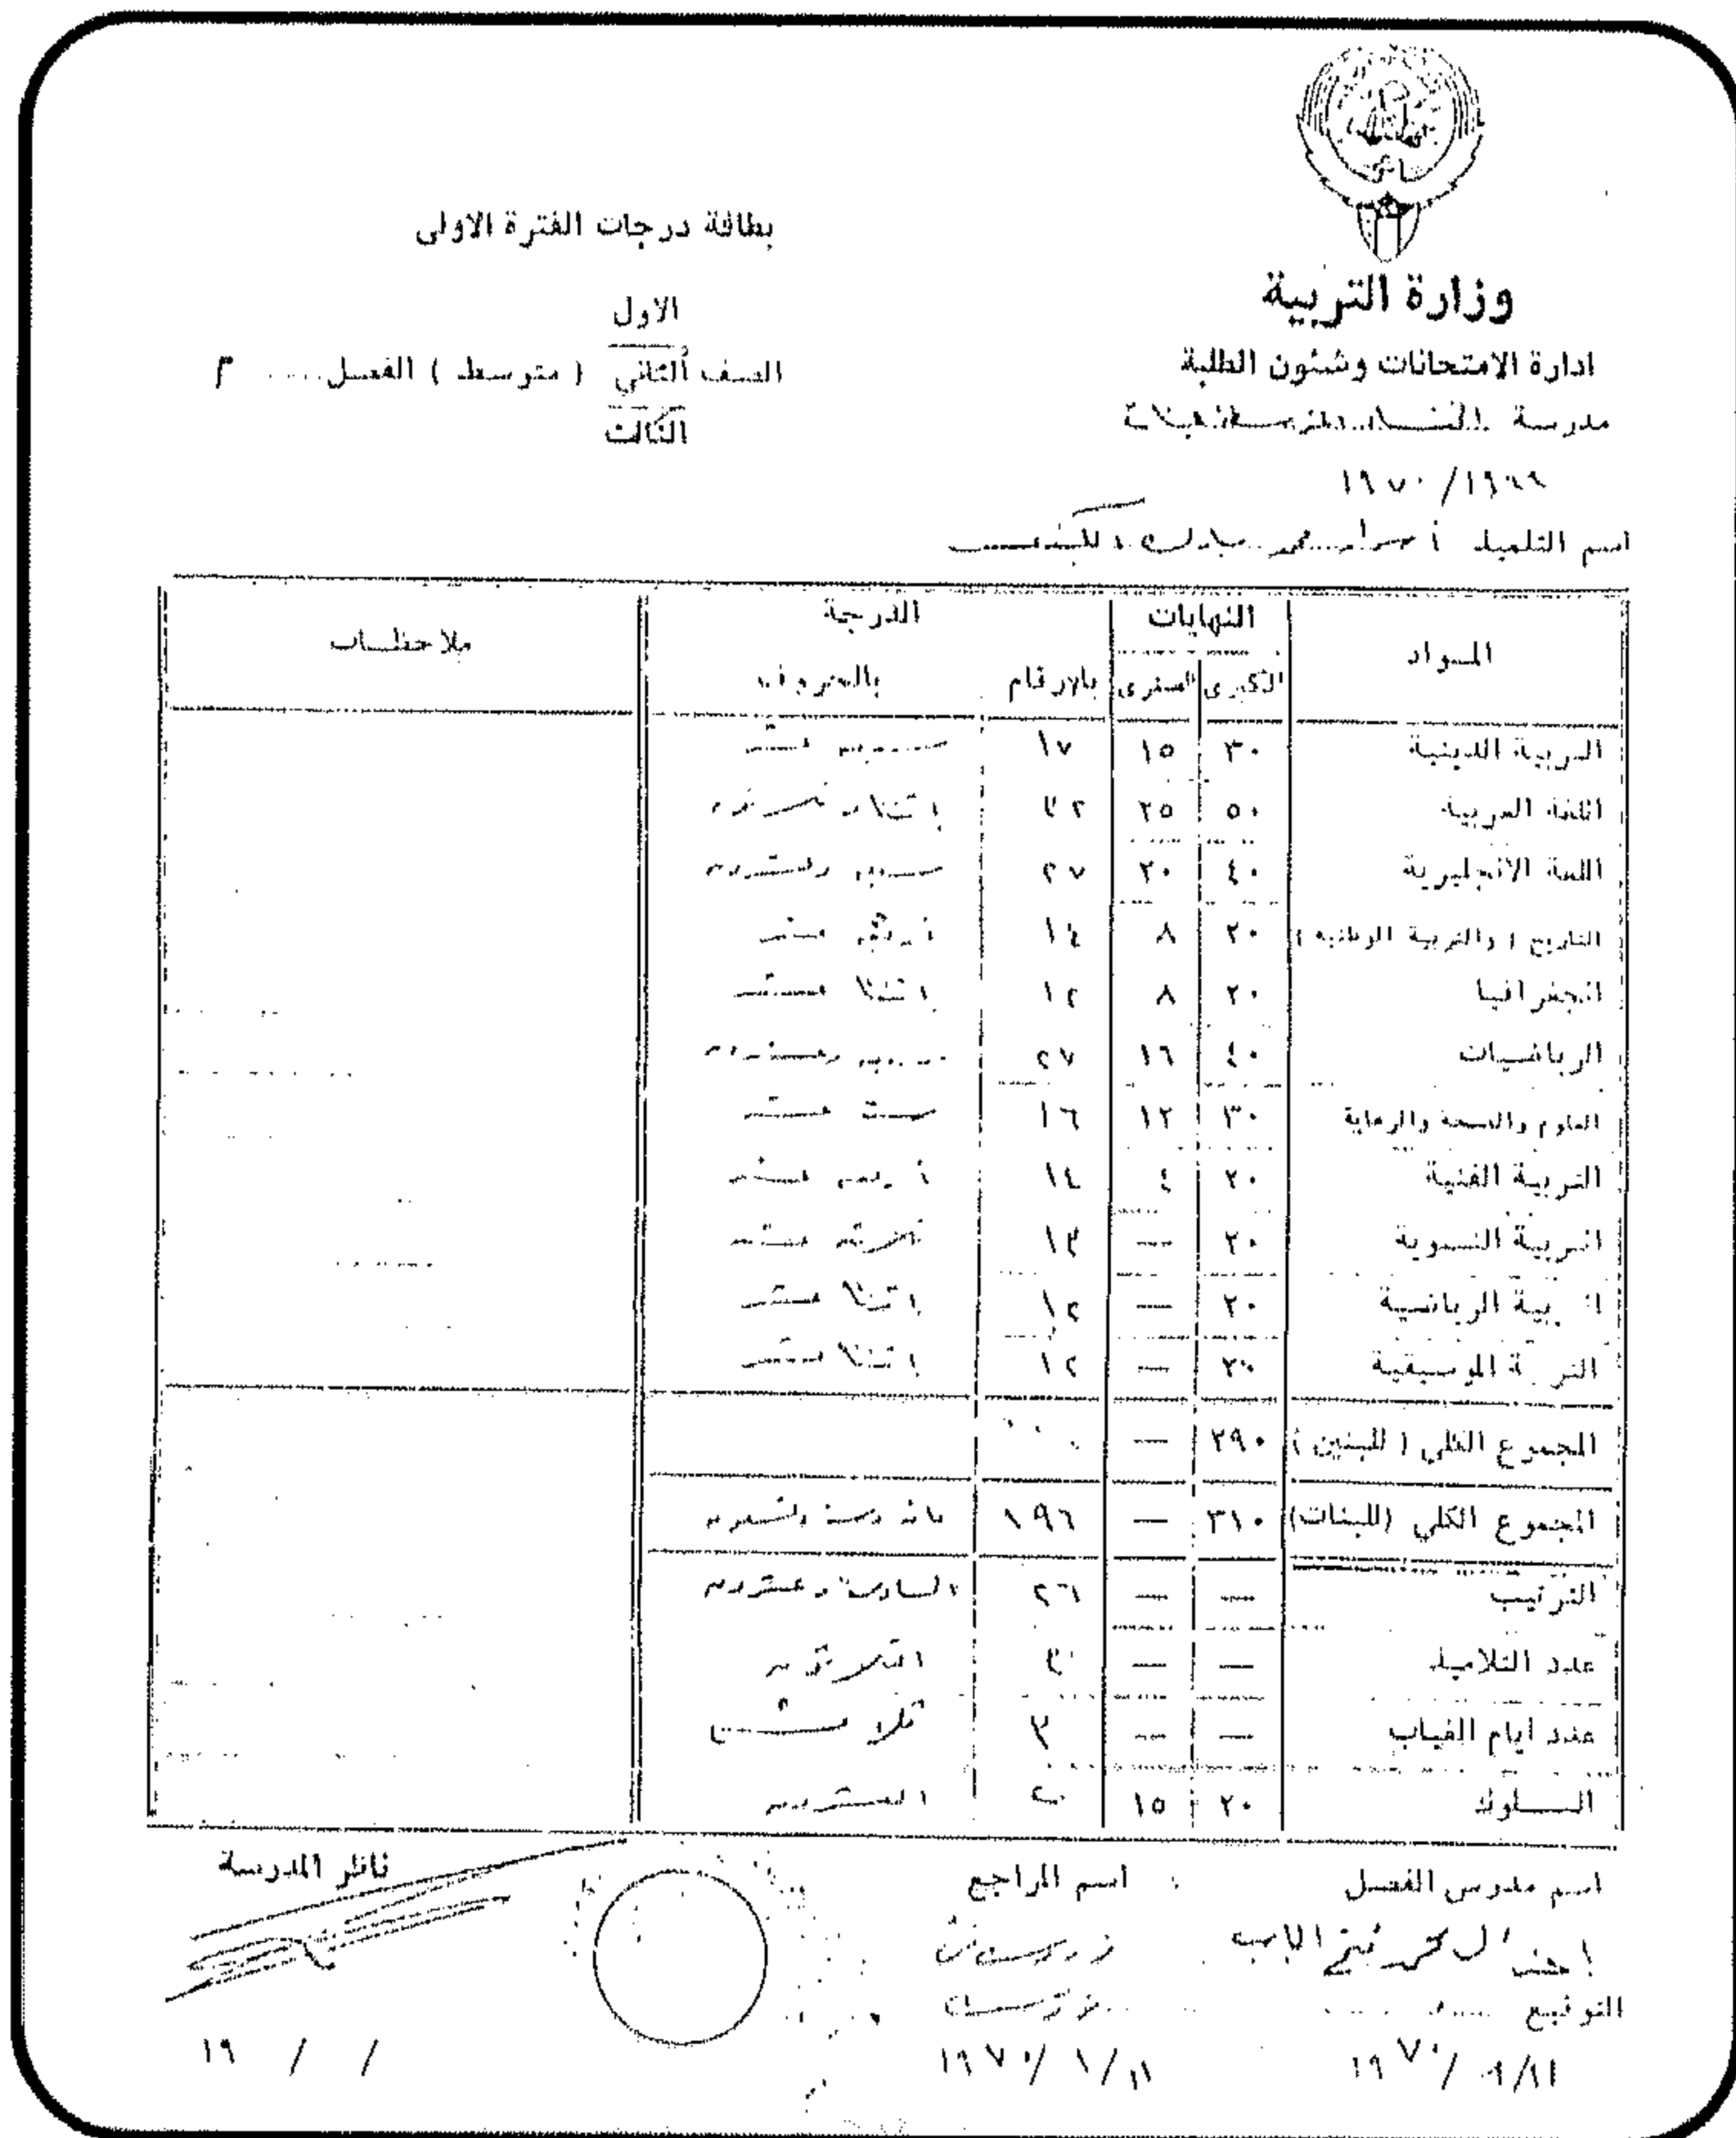 وزارة التربية
ادارة الامتحانات وشئون الطلبة
مدرسة
١٩٦٩/١٩٧٠
اسم التلميذ
بطاقة درجات الفترة الاولى
الاول
الصف الثاني ( متوسط ) الفصل .... ٣
الثالث
المواد النهايات الدرجة ملاحظات
الكبرى الصغرى بالارقام بالحروف
التربية الدينية ٣٠ ١٥ ١٧ سبع عشر
اللغة العربية ٥٠ ٢٥ ٣٢ اثنان وثلاثون
اللغة الانجليزية ٤٠ ٢٠ ٢٧ سبع وعشرون
التاريخ ( والتربية الوطنية ) ٢٠ ٨ ١٤ أربع عشر
الجغرافيا ٢٠ ٨ ١٢ اثنا عشر
الرياضيات ٤٠ ١٦ ٢٧ سبع وعشرون
العلوم والصحة والرعاية ٣٠ ١٢ ١٦ ست عشر
التربية الفنية ٢٠ ٤ ١٤ أربع عشر
التربية النسوية ٢٠ — ١٣ ثلاثة عشر
التربية الرياضية ٢٠ — ١٢ اثنا عشر
التربية الموسيقية ٢٠ — ١٢ اثنا عشر
المجموع الكلي ( للبنين ) ٢٩٠ —
المجموع الكلي (للبنات) ٣١٠ — ١٩٦ مائة وستة وتسعون
الترتيب — — ٢٦ السادسة وعشرون
عدد التلاميذ — — ٣٠ الثلاثون
عدد ايام الغياب — — ٣ ثلاث
السلوك ٢٠ ١٥ ٢٠ العشرون
اسم مدرس الفصل اسم المراجع ناظر المدرسة
التوقيع
١٩٧٠/ ١/١١ ١٩ / /